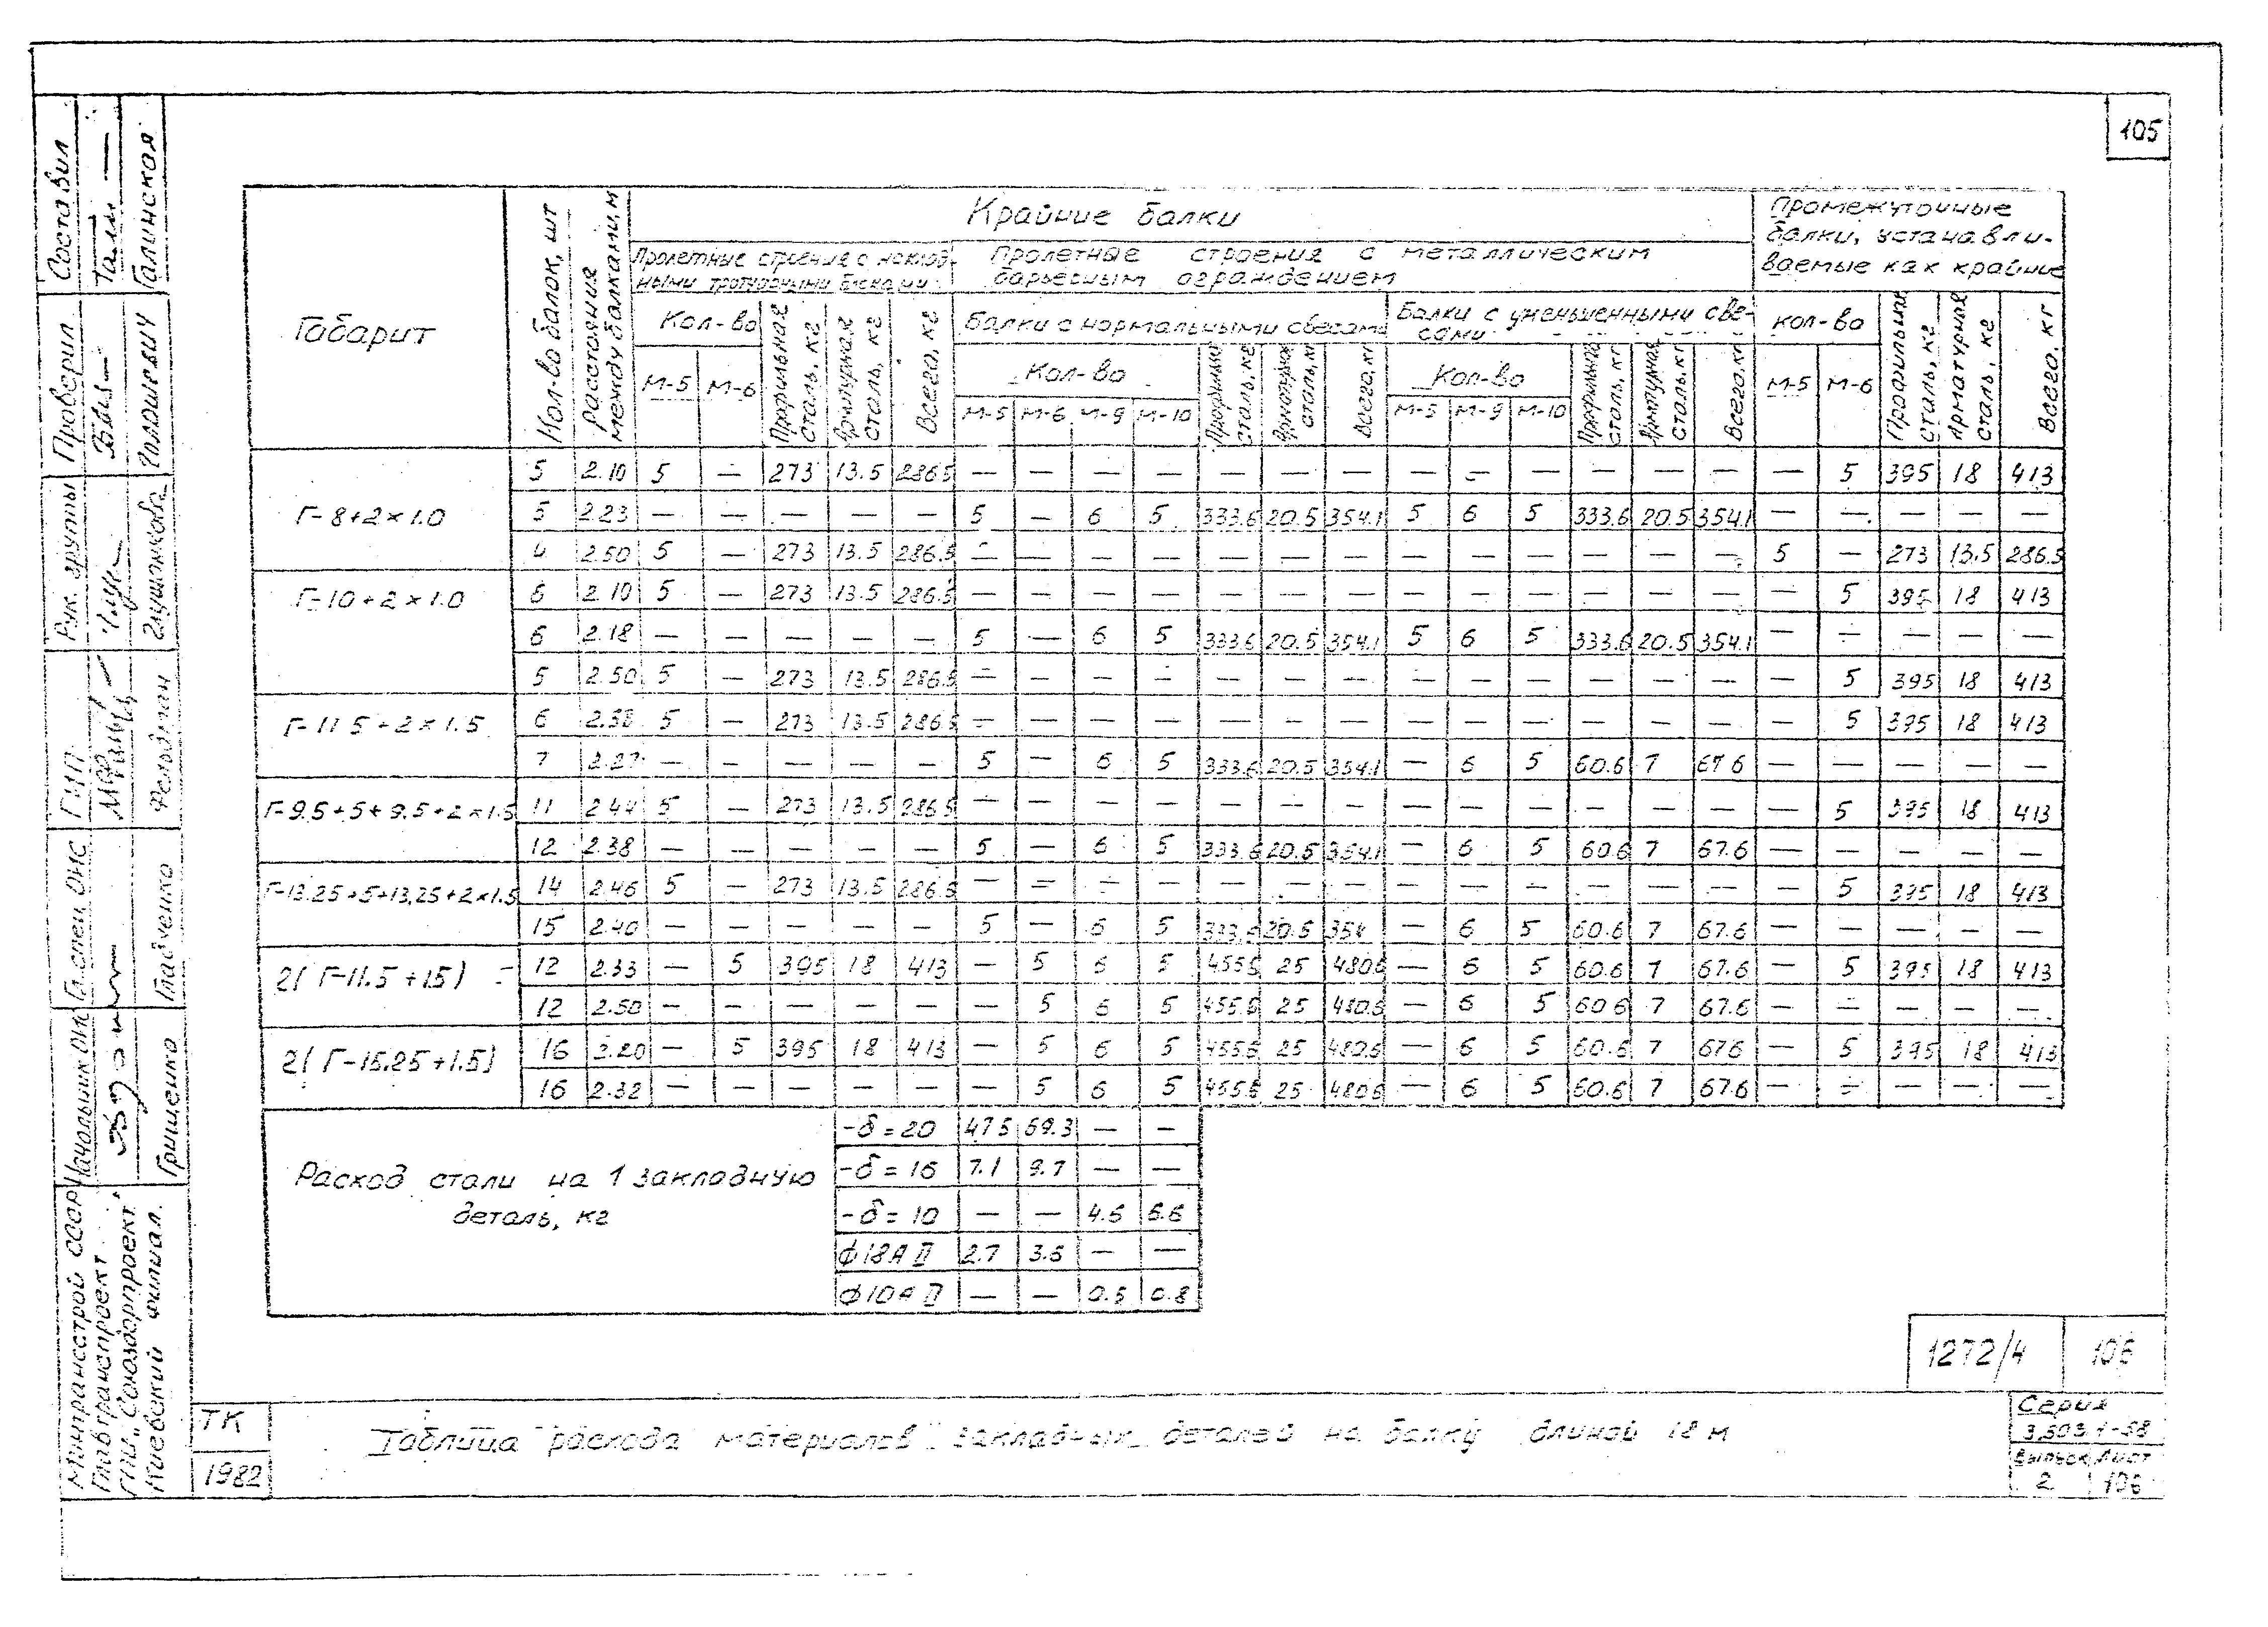 105
Крайние балки
Промежуточные
балки, устанавли-
ваемые как крайние
Пролетные строения с наклад-
ными тротуарными блоками
Пролетные строения с металлическим
барьерным ограждением
Габарит
Кол-во балок, шт
Расстояния
между балками, м
Кол-во
Профильная
сталь, кг
Арматурная
сталь, кг
Всего, кг
Балки с нормальными свесами
Балки с уменьшенными све-
сами
Кол-во
Профильная
сталь, кг
Арматурная
сталь, кг
Всего, кг
М-5 М-6
Кол-во
Профильная
сталь, кг
Арматурная
сталь, кг
Всего, кг
Кол-во
Профильная
сталь, кг
Арматурная
сталь, кг
Всего, кг
М-5 М-6
М-5 М-6 М-9 М-10
М-5 М-9 М-10
Г-8+2×1.0
5 2.10 5 — 273 13.5 286.5 — — — — — — — — — — — — — — 5 395 18 413
5 2.23 — — — — — 5 — 6 5 333.6 20.5 354.1 5 6 5 333.6 20.5 354.1 — — — — —
4 2.50 5 — 273 13.5 286.5 — — — — — — — — — — — — — 5 — 273 13.5 286.5
Г-10+2×1.0
6 2.10 5 — 273 13.5 286.5 — — — — — — — — — — — — — — 5 395 18 413
6 2.18 — — — — — 5 — 6 5 333.6 20.5 354.1 5 6 5 333.6 20.5 354.1 — — — — —
5 2.50 5 — 273 13.5 286.5 — — — — — — — — — — — — — — 5 395 18 413
Г-11.5+2×1.5
6 2.38 5 — 273 13.5 286.5 — — — — — — — — — — — — — — 5 395 18 413
7 2.27 — — — — — 5 — 6 5 333.6 20.5 354.1 — 6 5 60.6 7 67.6 — — — — —
Г-9.5+5+9.5+2×1.5
11 2.44 5 — 273 13.5 286.5 — — — — — — — — — — — — — — 5 395 18 413
12 2.38 — — — — — 5 — 6 5 333.6 20.5 354.1 — 6 5 60.6 7 67.6 — — — — —
Г-13.25+5+13,25+2×1.5
14 2.46 5 — 273 13.5 286.5 — — — — — — — — — — — — — — 5 395 18 413
15 2.40 — — — — — 5 — 6 5 333.6 20.5 354 — 6 5 60.6 7 67.6 — — — — —
2(Г-11.5+1.5)
12 2.33 — 5 395 18 413 — 5 6 5 455.6 25 480.6 — 6 5 60.6 7 67.6 — 5 395 18 413
12 2.50 — — — — — — 5 6 5 455.6 25 480.6 — 6 5 60.6 7 67.6 — — — — —
2(Г-15.25+1.5)
16 2.20 — 5 395 18 413 — 5 6 5 455.6 25 480.6 — 6 5 60.6 7 67.6 — 5 395 18 413
16 2.32 — — — — — — 5 6 5 455.6 25 480.6 — 6 5 60.6 7 67.6 — — — — —
Расход стали на 1 закладную
деталь, кг
-δ=20 47.5 69.3 — —
-δ=16 7.1 9.7 — —
-δ=10 — — 4.6 6.6
ф18АII 2.7 3.6 — —
ф10АII — — 0.5 0.8
1272/4 106
ТК
1982
Таблица расхода материалов закладных деталей на балку длиной 18 м
Серия
3.503.1-58
Выпуск Лист
2 106
Составил
Галинская
Проверил
Рук. группы
ГИП
Фельдман
Гл. спец. ОИС
Гладченко
Начальник ОИС
Гриценко
Минтрансстрой СССР
Главтранспроект
ГПИ „Союздорпроект"
Киевский филиал.